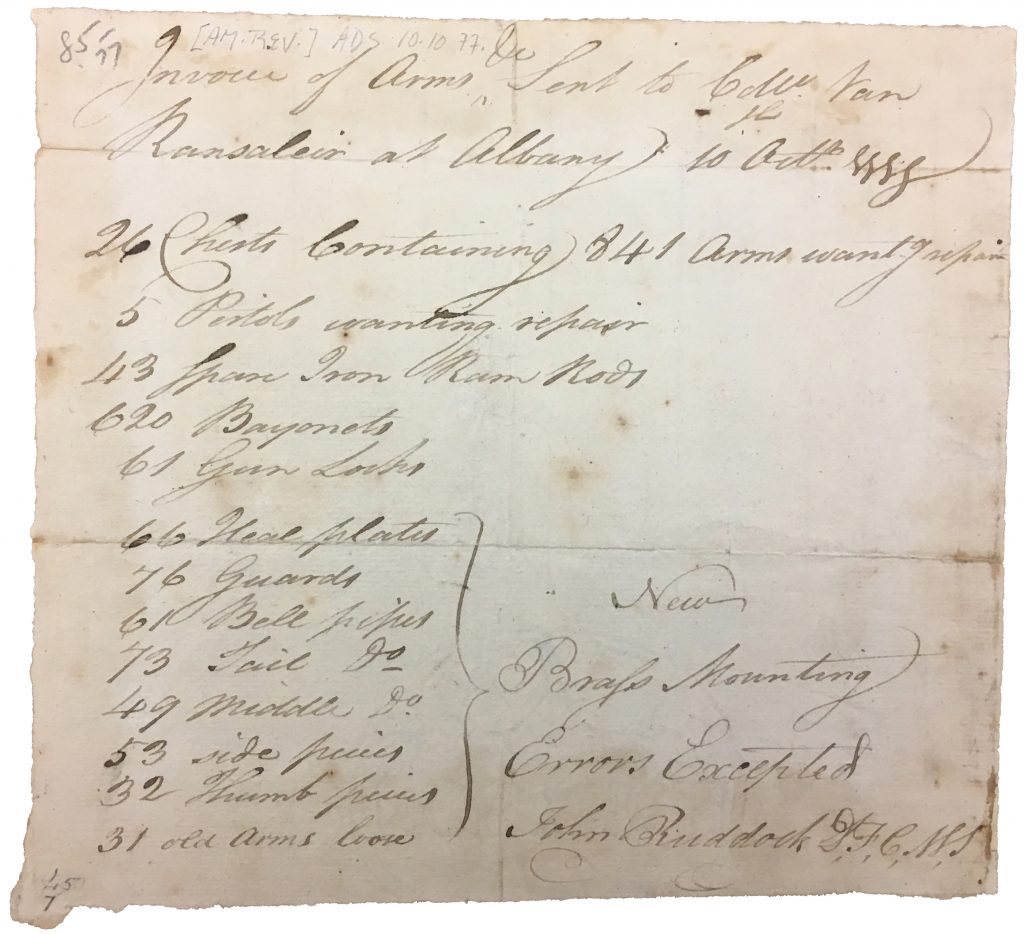 85/77 [AM. REV.] ADS. 10.10.77.
Invoice of Arms &c Sent to Colo. Van
Ransaleir at Albany 10 Octr. 1777
26 Chests Containing 841 Arms want.g repair
5 Pistols wanting repair
43 Spare Iron Ram Rods
620 Bayonets
61 Gun Locks
66 Heal plates
76 Guards
61 Bell pipes
73 Tail Do
49 Middle Do.
53 side pieces
32 Thumb pieces
31 old Arms loose
New
Brass Mounting
Errors Excepted
John Ruddock D,F,C,M,S